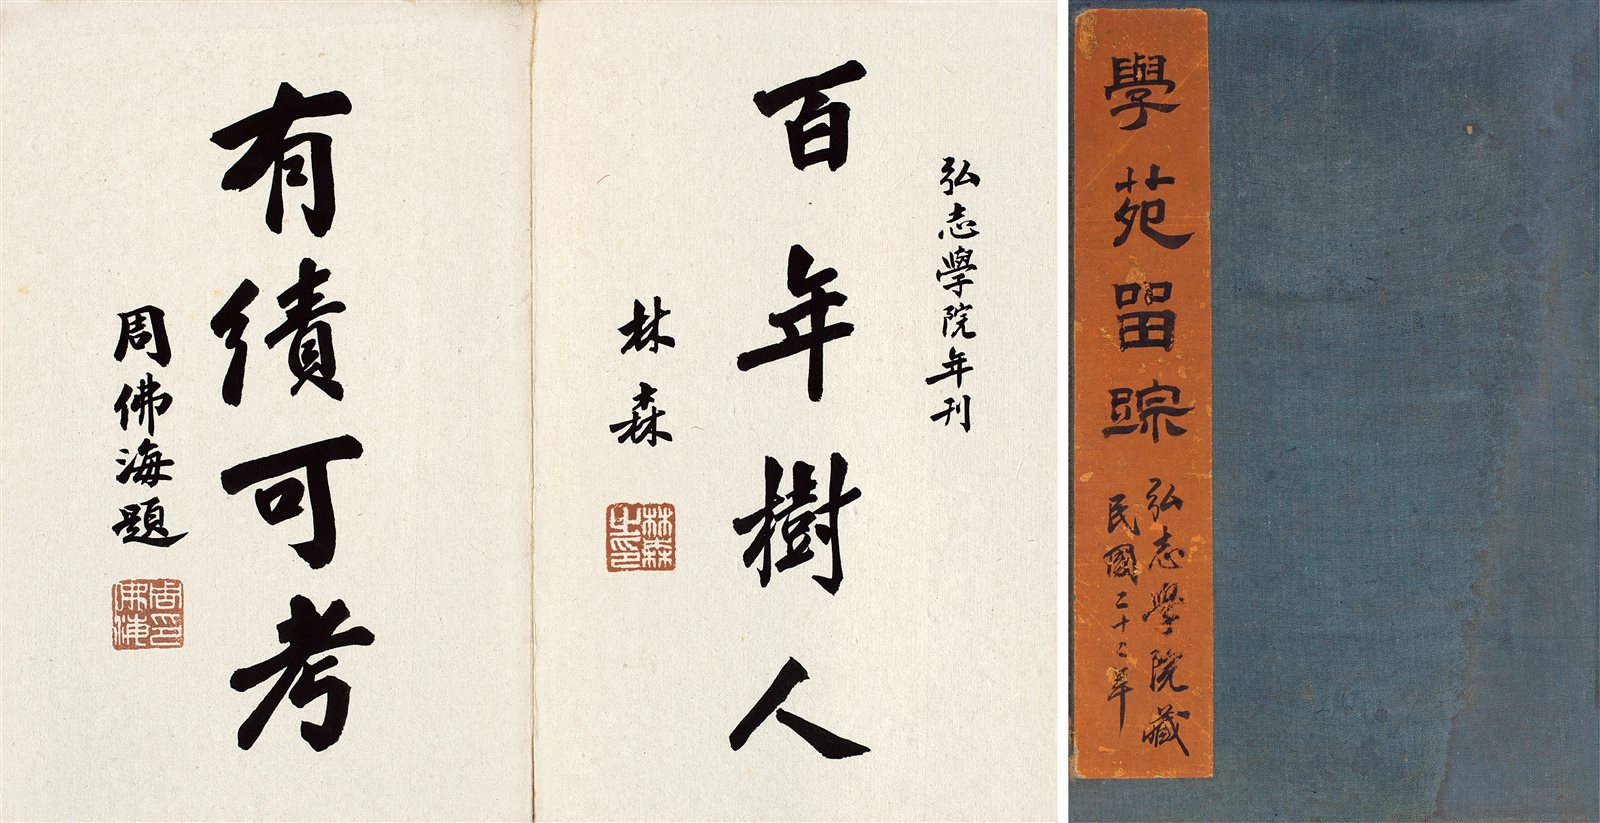 學苑留踪
弘志學院藏
民國二十二年
弘志學院年刊
百年樹人
林森
林森之印
有績可考
周佛海題
周佛海印